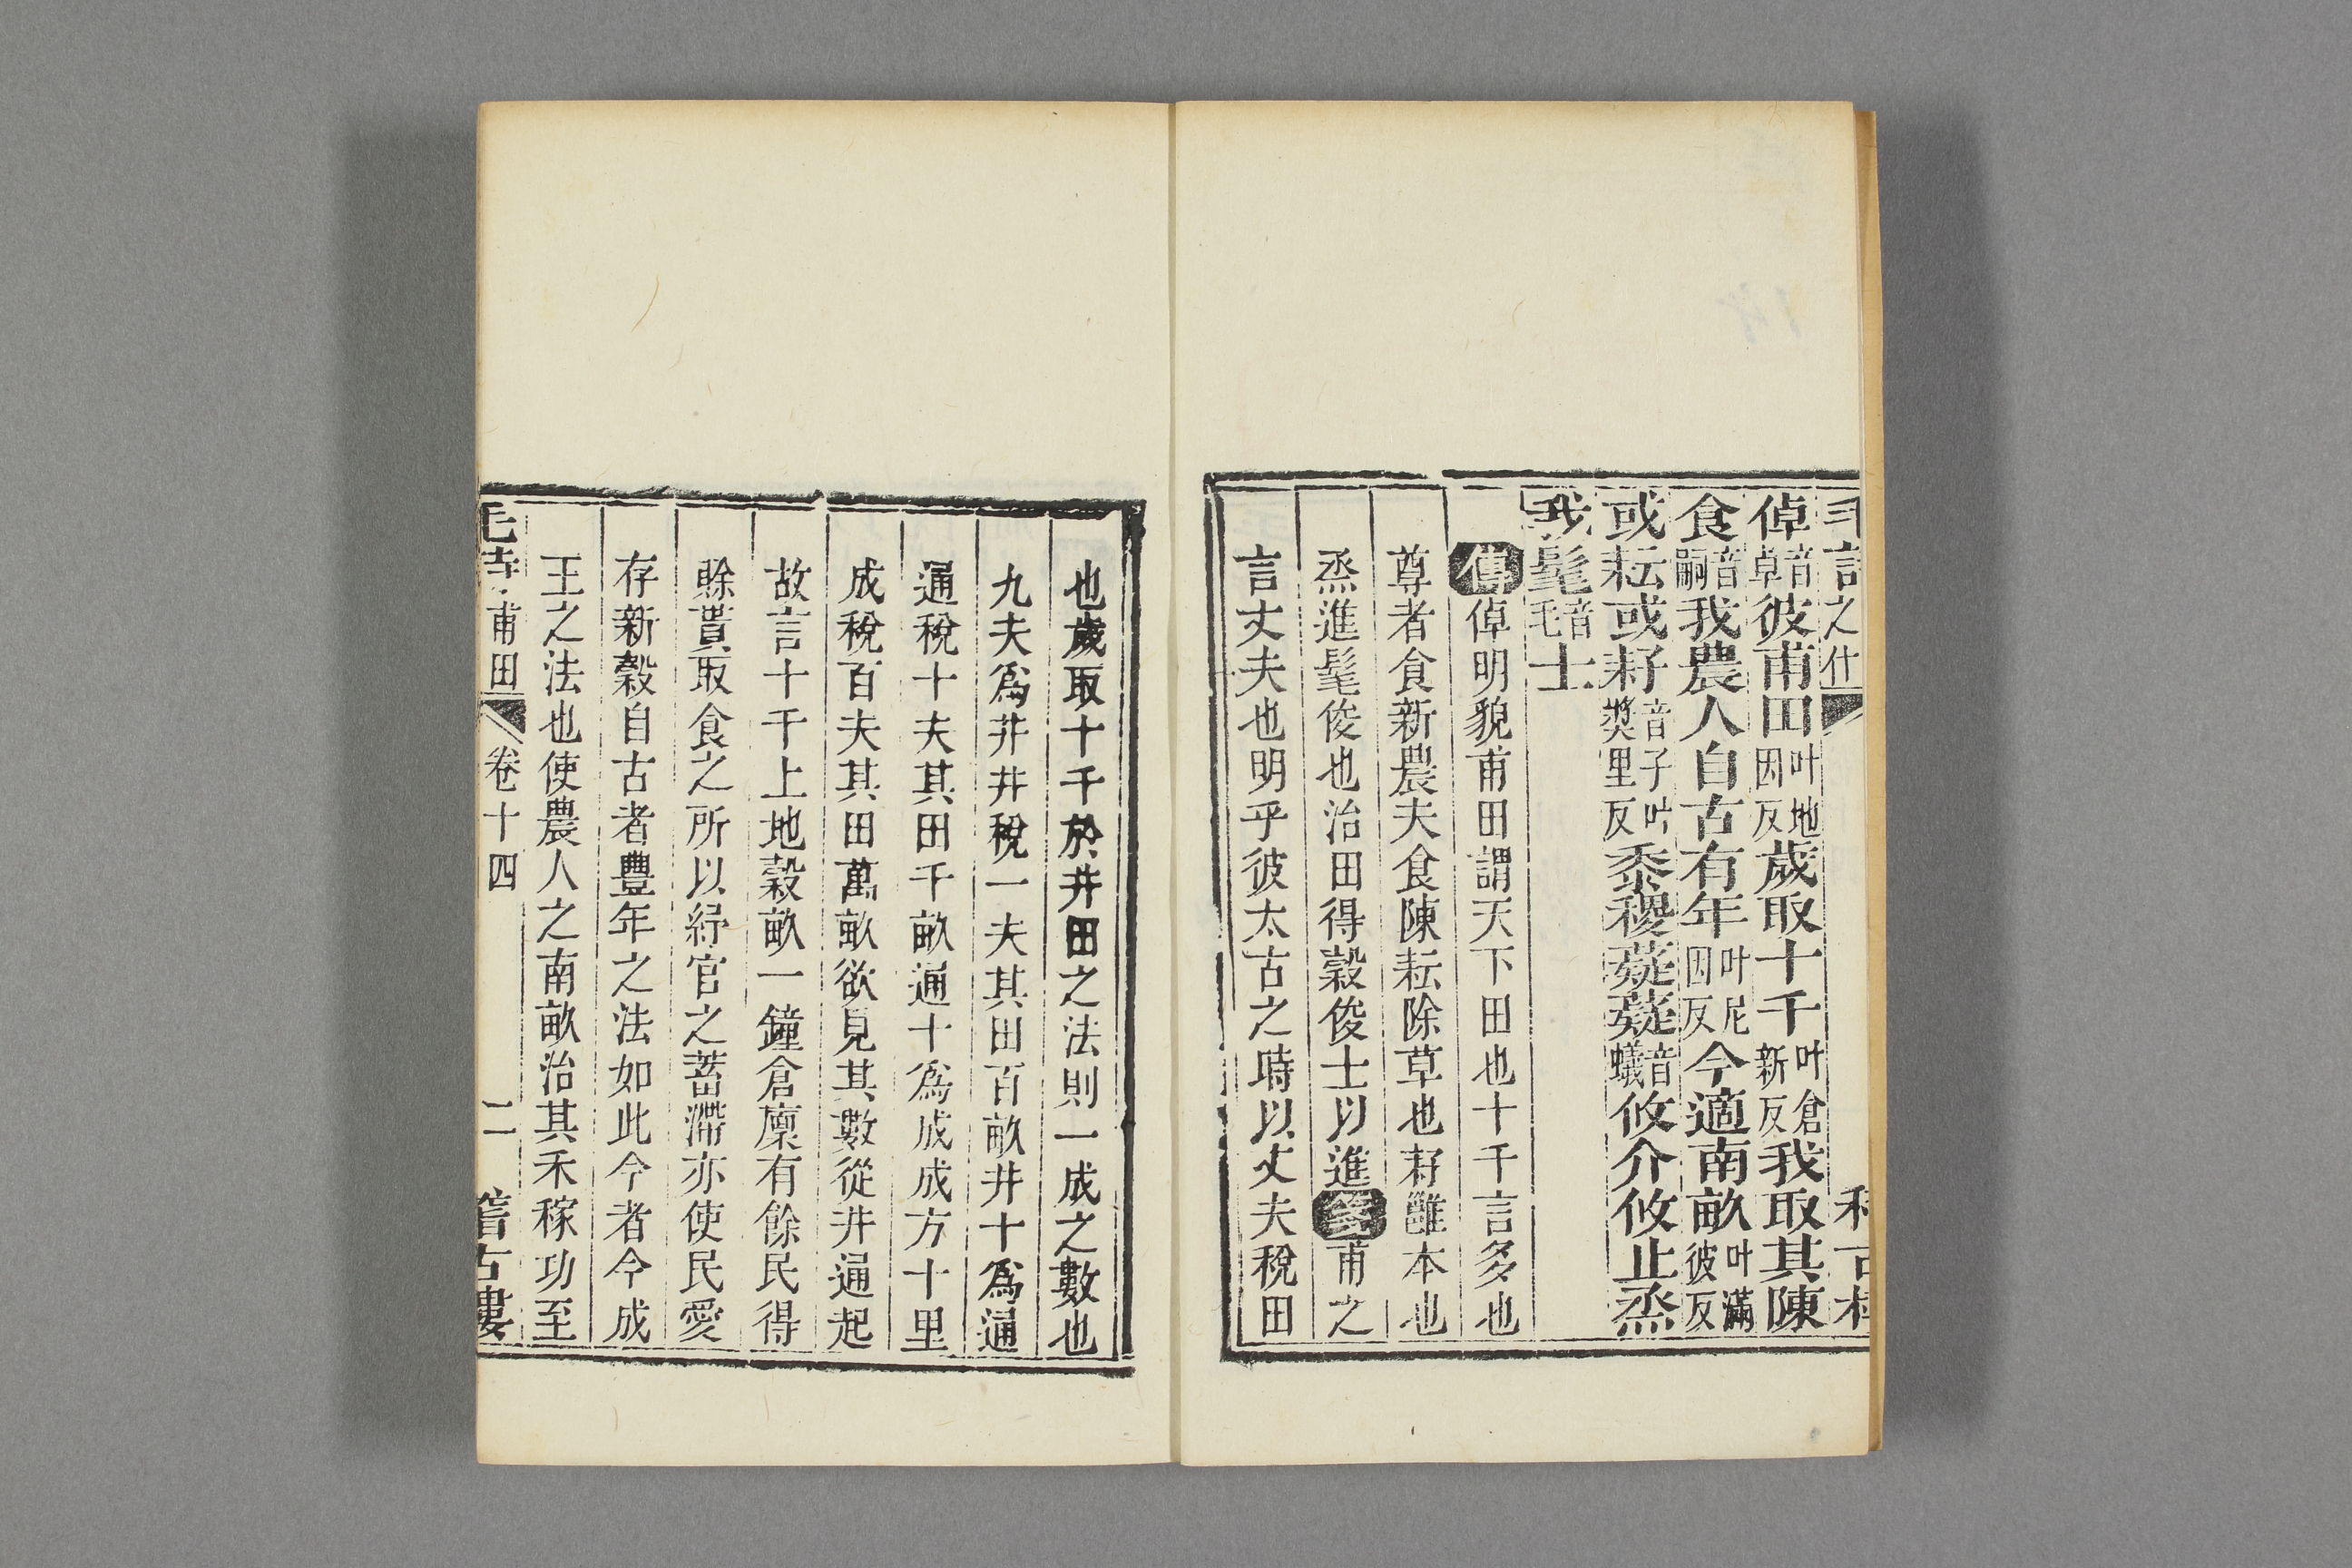 之什
倬音卓彼甫田叶地因反歲取十千叶倉新反我取其陳
食音嗣我農人自古有年叶尼因反今適南畝叶滿彼反
或耘或耔音子叶獎里反黍稷薿薿音蟻攸介攸止烝
我髦音毛士
傳倬明貌甫田謂天下田也十千言多也
尊者食新農夫食陳耘除草也耔雝本也
烝進髦俊也治田得穀俊士以進箋甫之
言丈夫也明乎彼太古之時以丈夫稅田
也歲取十千於井田之法則一成之數也
九夫爲井井稅一夫其田百畝井十爲通
通稅十夫其田千畝通十爲成成方十里
成稅百夫其田萬畝欲見其數從井通起
故言十千上地穀畝一鐘倉廩有餘民得
賖貰取食之所以紓官之蓄滯亦使民愛
存新穀自古者豐年之法如此今者今成
王之法也使農人之南畝治其禾稼功至
甫田 卷十四 二 稽古樓